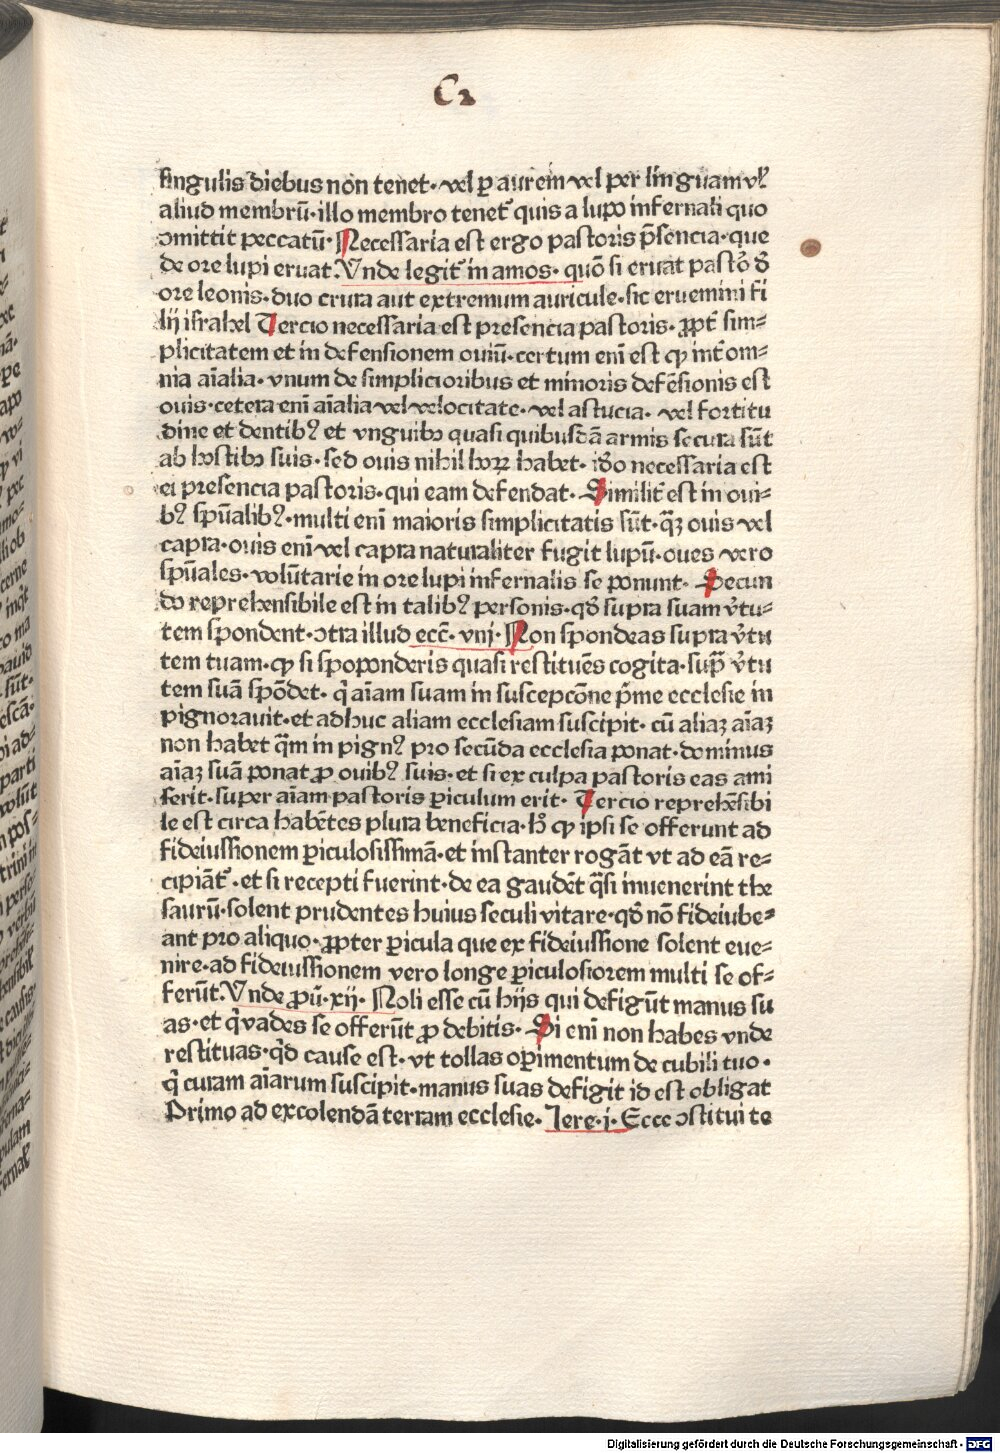 C2
singulis diebus non tenet· vel ꝑ aurem vel per linguam vl̓
aliud membrū· illo membro tenet᷑ quis a lupo infernali quo
ↄmittit peccatū· Necessaria est ergo pastoris p̄sencia· que
de ore lupi eruat Vnde legit᷑ in amos· quō si eruat pastor᷑ d̄
ore leonis· duo crura aut extremum auricule· sic eruemini fi
lij israhel Tercio necessaria est presencia pastoris· ꝓpt᷑ sim⸗
plicitatem et in defensionem ouiū· certum eni est ꝙ int᷑ om⸗
nia aīalia· vnum de simplicioribus et minoris defēsionis est
ouis· cetera eni aīalia vel velocitate· vel astucia· vel fortitu
dine et dentibꝰ et vnguibꝫ quasi quibusdā armis secura sūt
ab hostibꝫ suis· sed ouis nihil hoꝝ habet· id̓o necessaria est
ei presencia pastoris· qui eam defendat· Similit᷑ est in oui⸗
bꝰ spūalibꝰ· multi eni maioris simplicitatis sūt· q̄ꝫ ouis vel
capra· ouis eni vel capra naturaliter fugit lupū· oues vero
spūales· volūtarie in ore lupi infernalis se ponunt· Secun
do reprehensibile est in talibꝰ personis· qd̓ supra suam v̓tu⸗
tem spondent· ↄtra illud ecc̄· viij· Non spondeas supra v̓tu
tem tuam· ꝙ si spoponderis quasi restituēs cogita· sup̄ v̓tu
tem suā spōdet· q̓ aīam suam in suscepcōne p̓me ecclesie in
pignorauit· et adhuc aliam ecclesiam suscipit· cū aliaꝫ aīaꝫ
non habet q̄m in pignꝰ pro secūda ecclesia ponat· dominus
aīaꝫ suā ponat ꝓ ouibꝰ suis· et si ex culpa pastoris eas ami
serit· super aīam pastoris ꝑiculum erit· Tercio reprehēsibi
le est circa habētes plura beneficia· h̓ ꝙ ipsi se offerunt ad
fideiussionem ꝑiculosissimā· et instanter rogāt vt ad eā re⸗
cipiāt᷑· et si recepti fuerint· de ea gaudēt q̄si inuenerint the
saurū· solent prudentes huius seculi vitare· qd̓ nō fideiube⸗
ant pro aliquo· ꝓpter ꝑicula que ex fideiussione solent eue⸗
nire· ad fideiussionem vero longe ꝑiculosiorem multi se of⸗
ferūt. Vnde ꝓū· xij· Noli esse cū hijs qui defigūt manus su
as· et q̓ vades se offerūt ꝓ debitis· Si eni non habes vnde
restituas· qd̓ cause est· vt tollas opimentum de cubili tuo·
q̓ curam aīarum suscipit· manus suas defigit id est obligat
Primo ad excolendā terram ecclesie· Iere· i· Ecce ↄstitui te
Digitalisierung gefördert durch die Deutsche Forschungsgemeinschaft - DFG